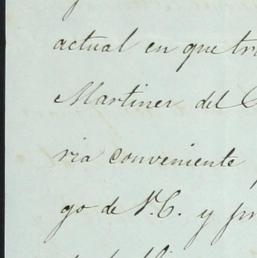 actual en que tr
Martinez del C
ria conveniente
go de V.C. y pr